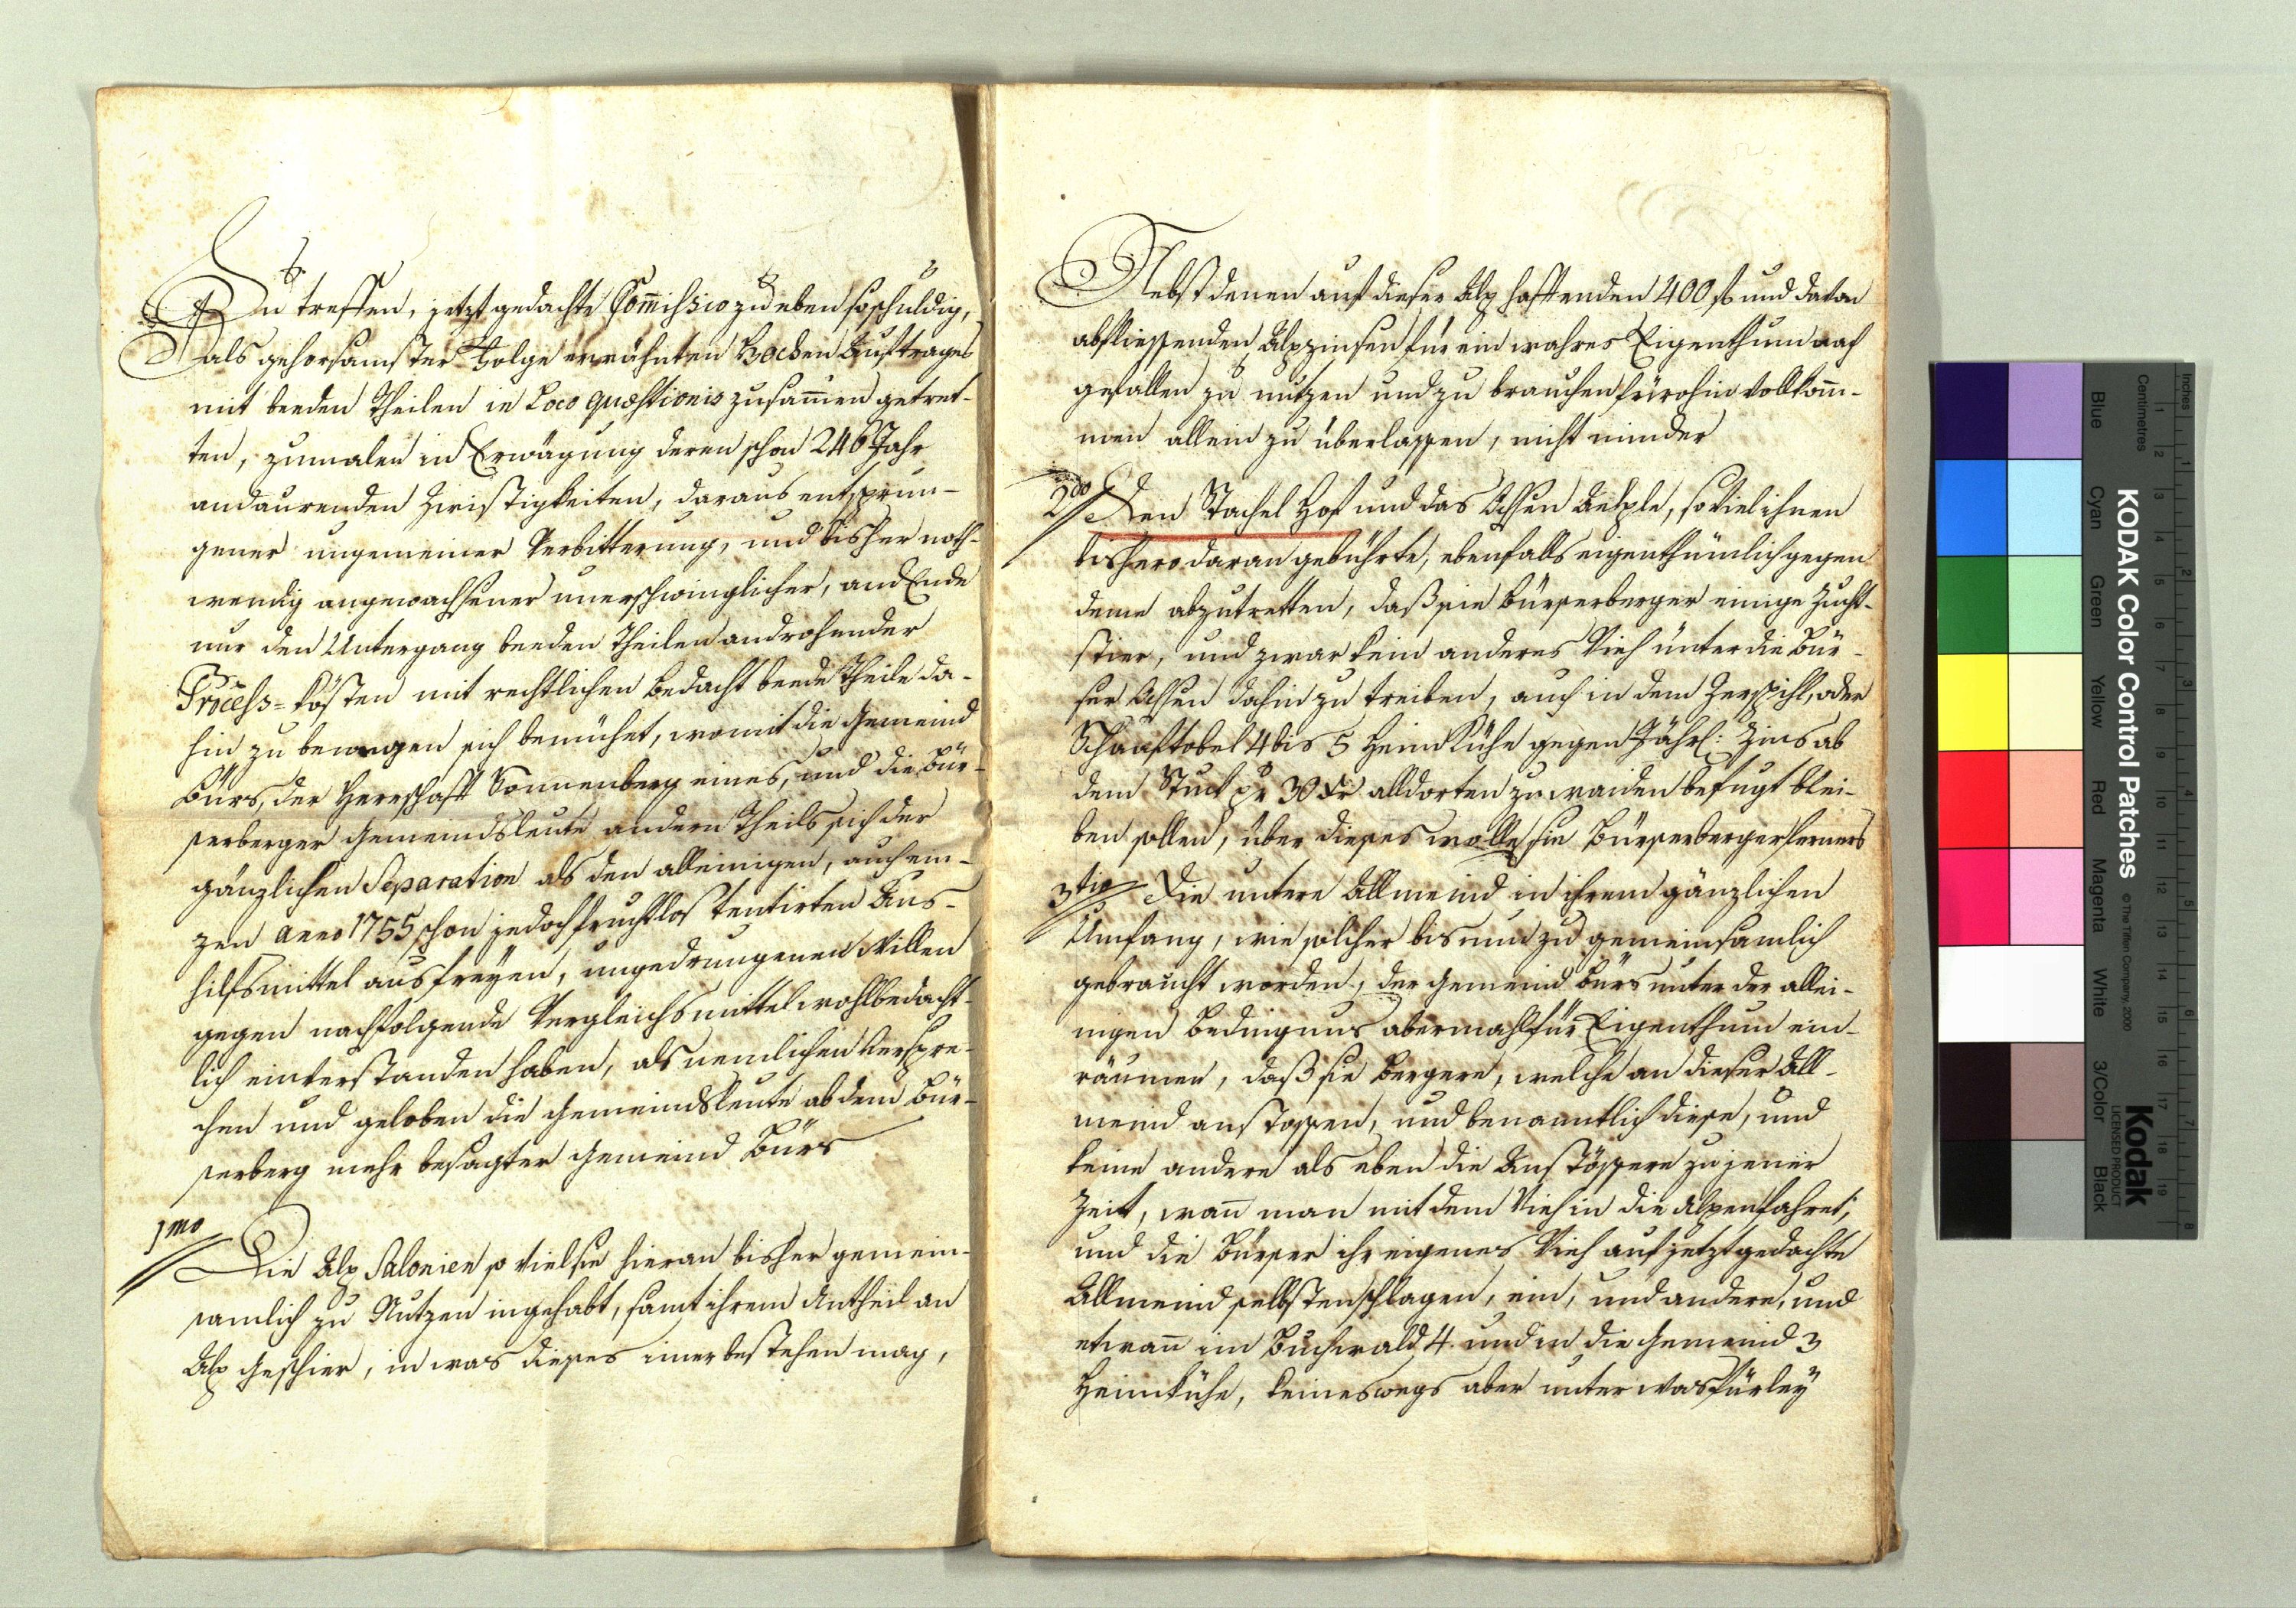 Zu treffen, jetzt gedachte Commissio zu eben so schuldig,
als gehorsamster Folge erwähnten Hochen Auftrages
mit beeden Theilen in Loco quæstionis zusammen getret-
ten, zumalen in Erwägung deren schon 246 Jahr
andaurenden Zwistigkeiten, daraus entsprun-
gener ungemeiner Verbitterung, und bisher noth-
wendig angewachsener unerschwinglicher, am Ende
nur den Untergang beeden Theilen androhender
Process-kösten mit rechtlichen Bedacht beede Theile da-
hin zu bewegen sich bemühet, womit die Gemeind
Bürs, der Herrschaft Sonnenberg eines, und die Bür-
serberger Gemeindsleute andern Theils sich der
gänzlichen Separation als den alleinigen, auch ein-
zen anno 1755 schon jedoch fruchtlos tentirten Aus-
hilfsmittel aus freyen, ungedrungenen Willen
gegen nachfolgende Vergleichsmittel wohlbedächt-
lich einverstanden haben, als nemlichen verspre-
chen und geloben die Gemeindsleute ab dem Bür-
serberg mehr besagter Gemeind Bürs
1mo Die Alp Salonien so viel sie hieran bisher gemein-
samlich zu Nutzen ingehabt, samt ihrem Antheil an
Alp Geschier, in was dieses imer bestehen mag,
Nebst denen auf dieser Alp haftenden 400 f und davon
abfliessenden Alpzinsen für ein wahres Eigenthum nach
gefallen zu nutzen und zu brauchen fürohin vollkom-
men allein zu überlassen, nicht minder
2do Den Stachel Hof und das Ochsen Aelple, so viel ihnen
bishero daran gebührte, ebenfalls eigenthümlich gegen
deme abzutretten, daß sie Bürserberger einige Zucht-
stier, und zwar kein anderes Vieh unter die Bür-
ser Ochsen dahin zu treiben, auch in dem Zerschihl, oder
Schaaftobel 4 bis 5 Heim Kühe gegen Jährl: Zins ab
dem Stuck pr 30 xr alldorten zu waiden befugt blei-
ben sollen, über dieses wolle sie Bürserberger ferners
3tio Die untere Allmeind in ihrem gänzlichen
Umfang, wie solcher bis nun zu gemeinsamlich
gebraucht worden, der Gemeind Bürs unter der allei-
nigen Bedingnus abermahl für Eigenthum ein-
räumen, daß sie Bergere, welche an dieser All-
meind anstossen, und benanntlich diese, und
keine andere als eben die Anstössere zu jener
Zeit, wann man mit dem Vieh in die Alpen fahret,
und die Bürser ihr eigenes Vieh auf jetzt gedachte
Allmeind selbsten schlagen, ein, und andere, und
etwann im Buchwald 4. und in die Gemeind 3
Heimkühe, keineswegs aber unter was fürley